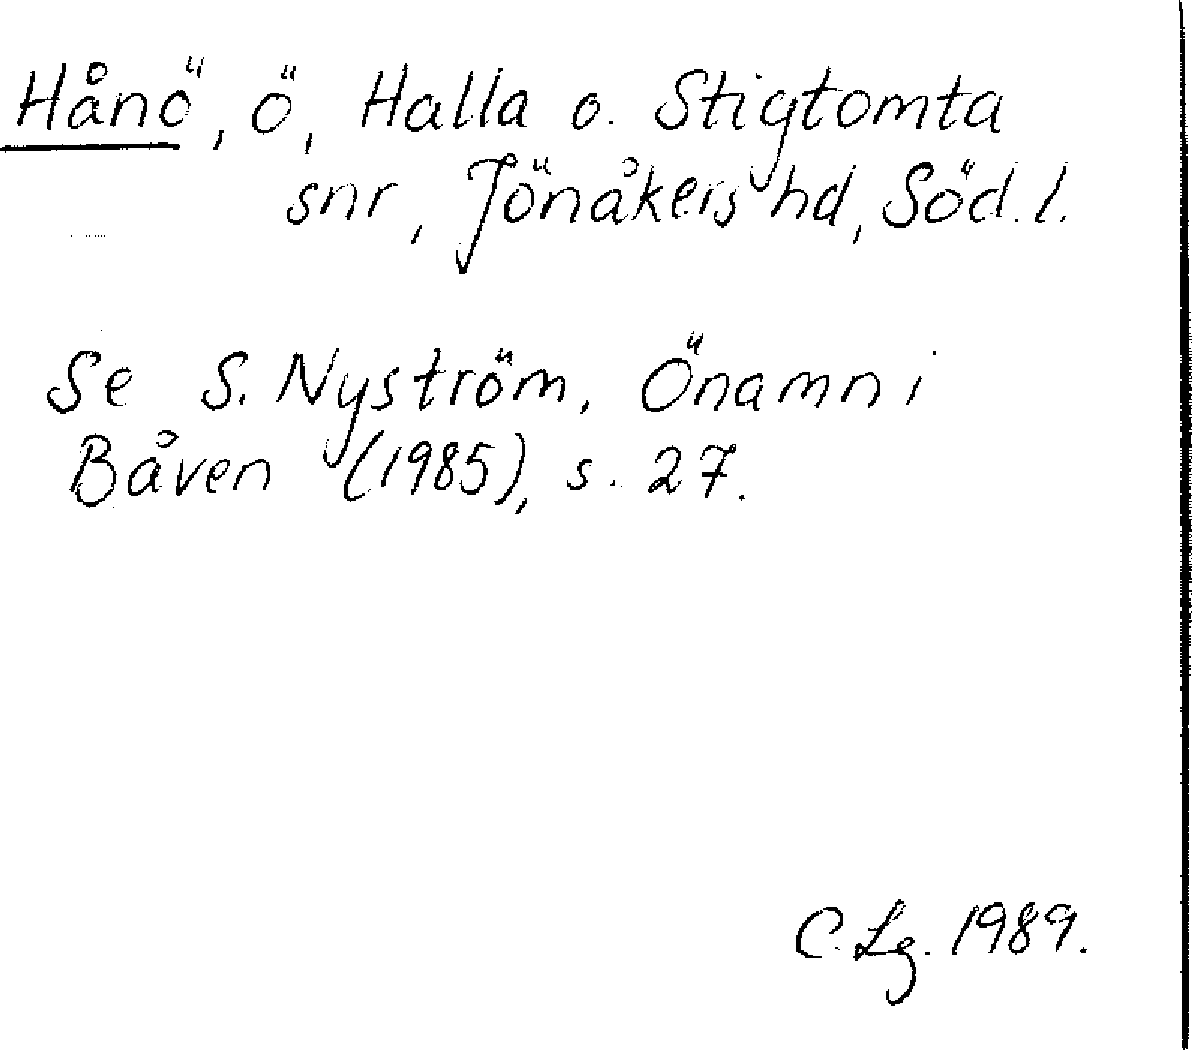 Hånö, ö, Halla o. Stigtomta
snr, Jönåkers hd, Söd. l.
Se S. Nyström, Önamn i
Båven (1985), s. 27.
C. Lg. 1989.